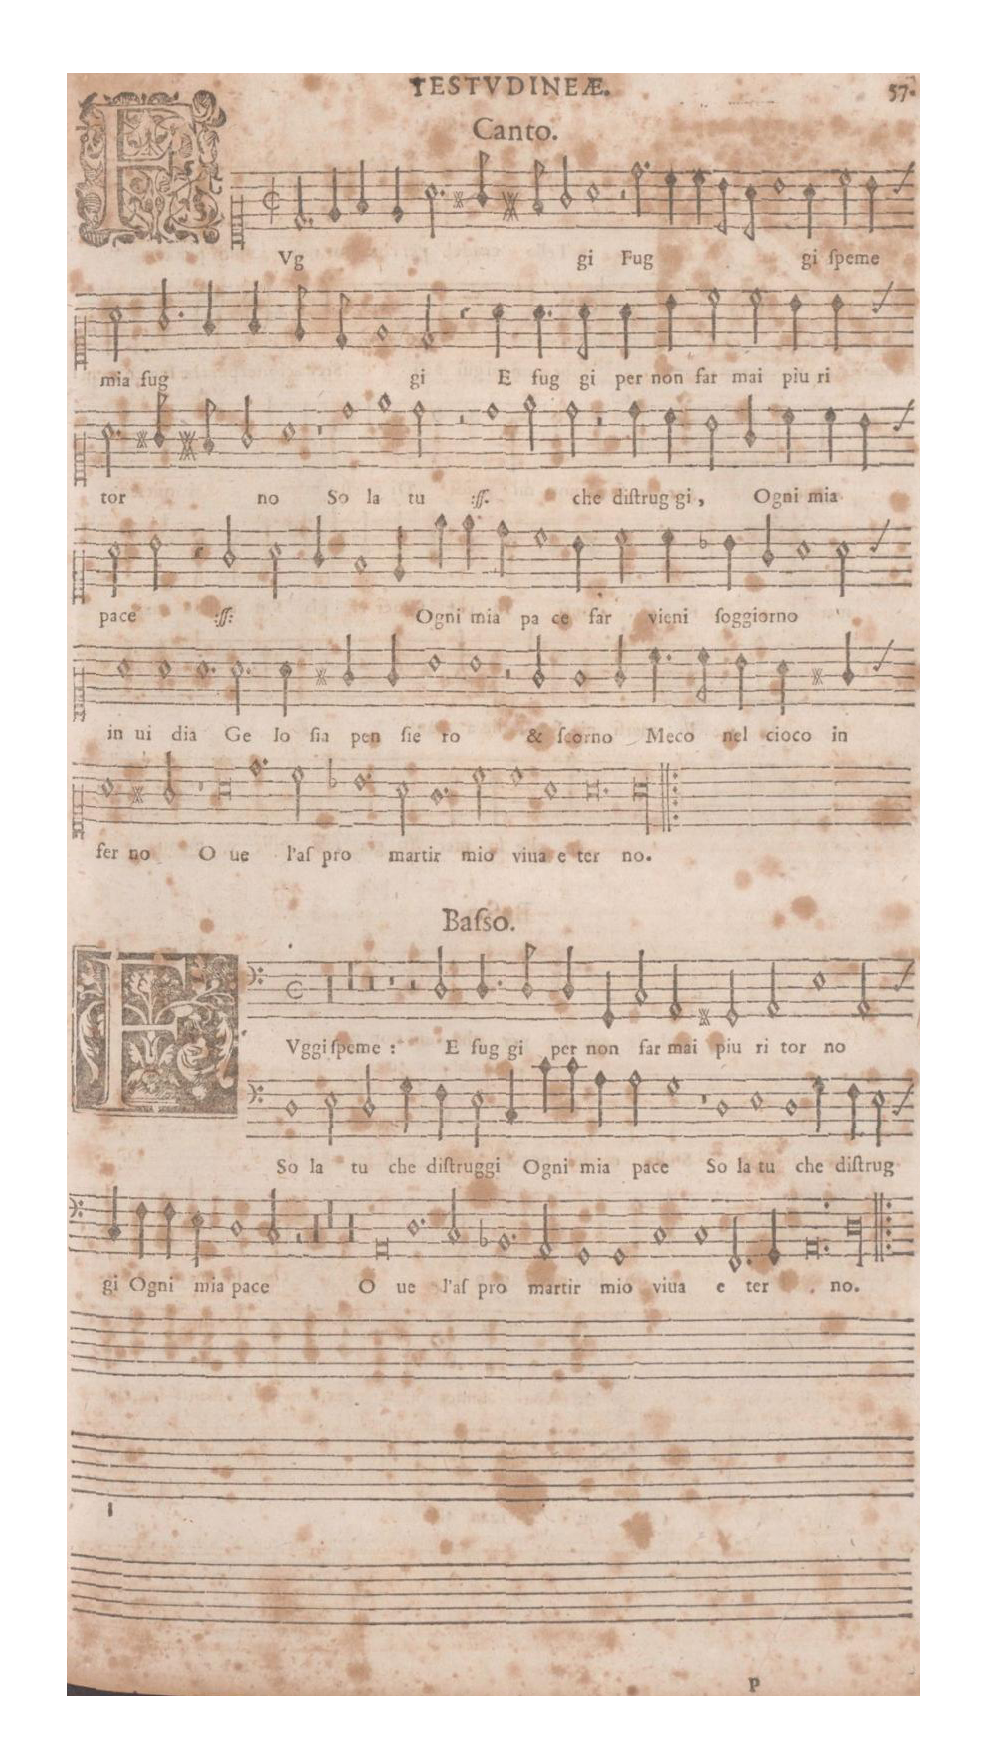 TESTVDINEÆ. 57.
Canto.
FVg gi Fug gi ſpeme
mia fug gi E fug gi per non far mai piu ri
tor no So la tu :ſſ: che diſtrug gi, Ogni mia
pace :ſſ: Ogni mia pa ce far vieni ſoggiorno
in ui dia Ge lo ſia pen ſie ro & ſcorno Meco nel cioco in
fer no O ue l'aſ pro martir mio viua e ter no.
Baſso.
FVggi ſpeme : E fug gi per non far mai piu ri tor no
So la tu che diſtruggi Ogni mia pace So la tu che diſtrug
gi Ogni mia pace O ue l'aſ pro martir mio viua e ter no.
P